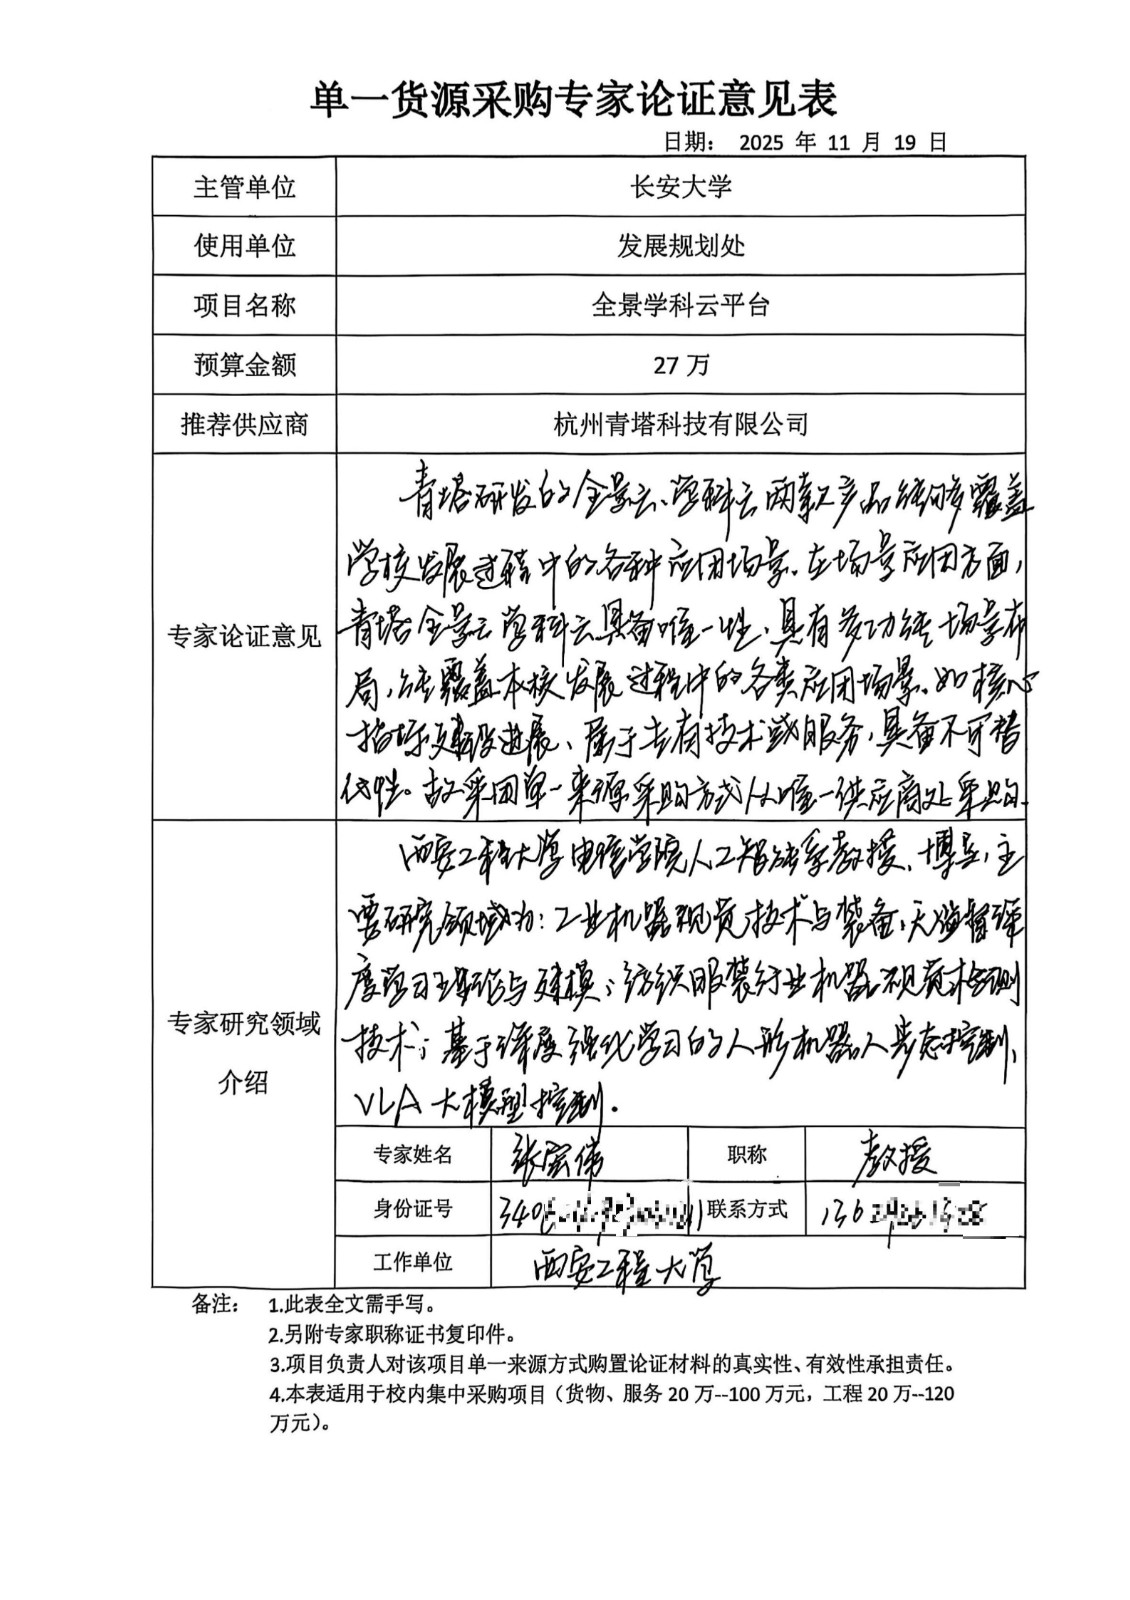 单一货源采购专家论证意见表
日期： 2025 年 11 月 19 日
主管单位 长安大学
使用单位 发展规划处
项目名称 全景学科云平台
预算金额 27 万
推荐供应商 杭州青塔科技有限公司
专家论证意见
青塔研发的全景云、学科云两款产品能够覆盖
学校发展过程中的各种应用场景。在场景应用方面，
青塔全景云学科云具备唯一性，具有多功能场景布
局，能覆盖本校发展过程中的各类应用场景。如核心
指标建设进展、属于专有技术或服务，具备不可替
代性。故采用单一来源采购方式从唯一供应商处采购。
专家研究领域
介绍
西安工程大学电信学院人工智能系教授、博导，主
要研究领域为：工业机器视觉技术与装备，无监督深
度学习理论与建模；纺织服装行业机器视觉检测
技术；基于深度强化学习的人形机器人步态控制、
VLA大模型控制.
专家姓名 张宏伟 职称 教授
身份证号 340 联系方式 136
工作单位 西安工程大学
备注： 1.此表全文需手写。
2.另附专家职称证书复印件。
3.项目负责人对该项目单一来源方式购置论证材料的真实性、有效性承担责任。
4.本表适用于校内集中采购项目（货物、服务 20 万--100 万元，工程 20 万--120
万元）。